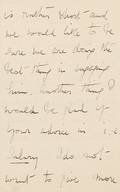 is rather short and
we would like to be
sure we are doing the
best thing in engaging
him. Another thing I
would be glad of
your advice in i.e
Salary I do not
want to give more